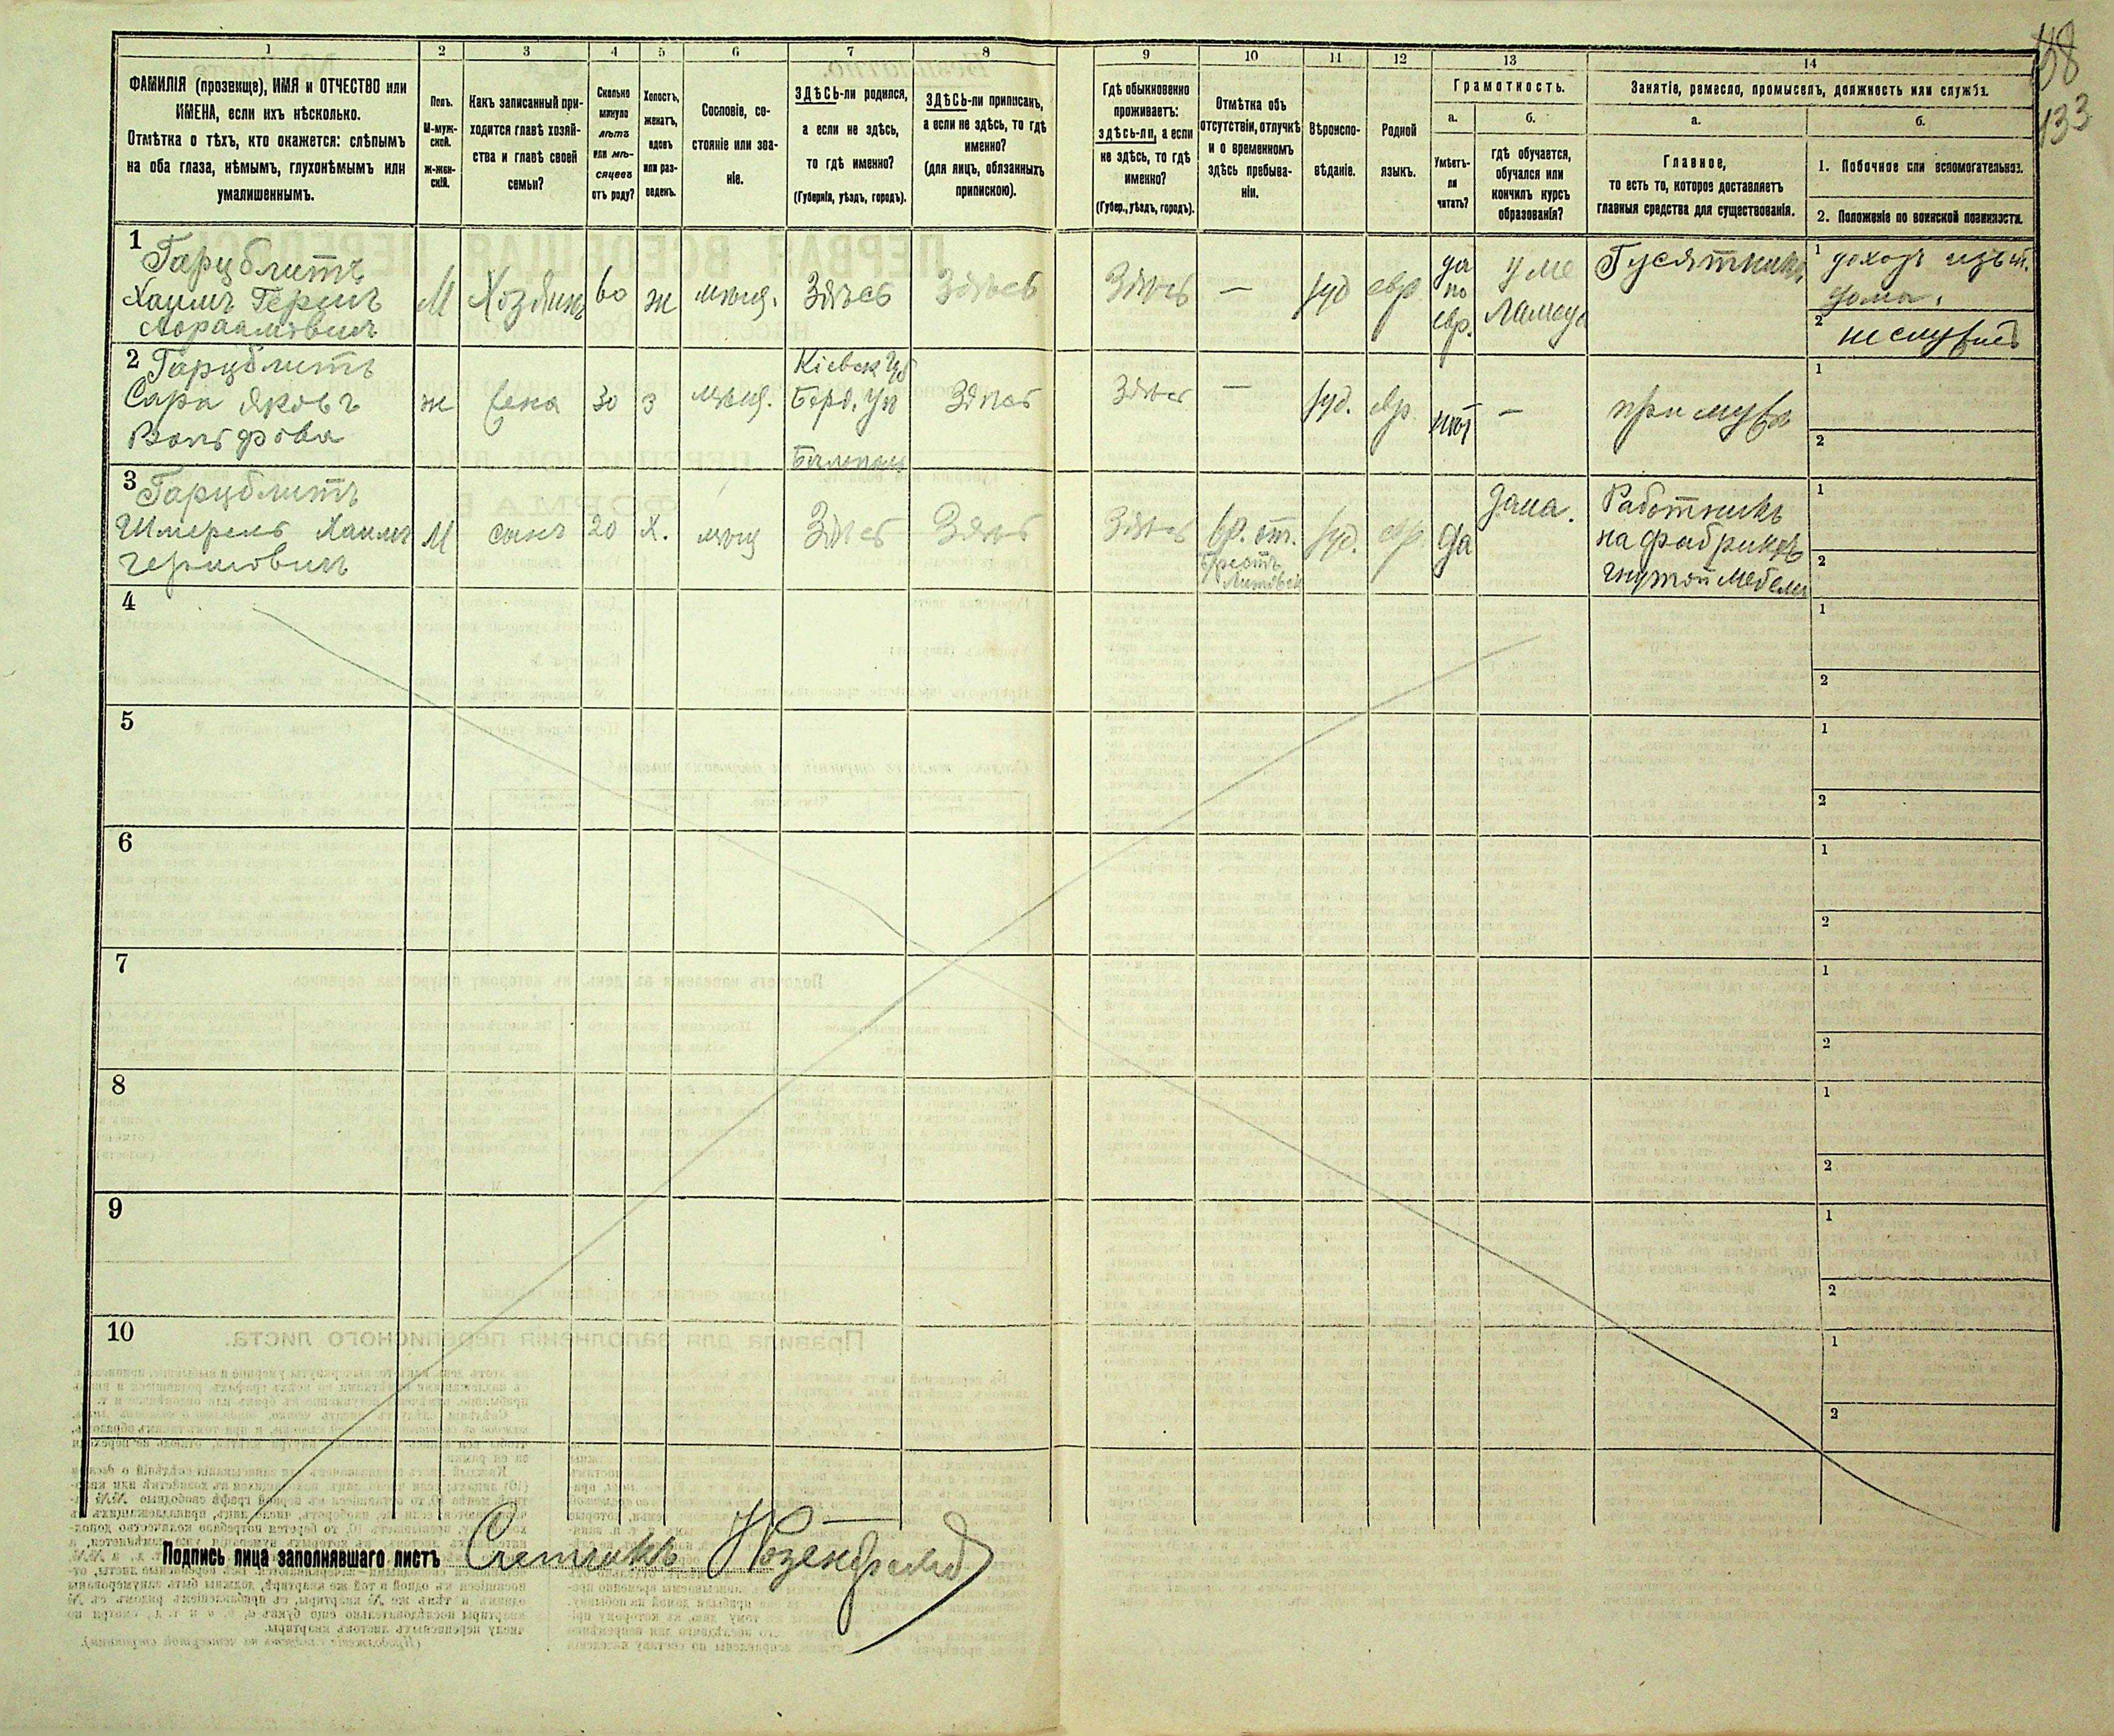 1 2 3 4 5 6 7 8 9 10 11 12 13 14
133
ФАМИЛІЯ (прозвище), ИМЯ и ОТЧЕСТВО или
ИМЕНА, если ихъ нѣсколько.
Отмѣтка о тѣхъ, кто окажется: слѣпымъ
на оба глаза, нѣмымъ, глухонѣмымъ или
умалишеннымъ.
Полъ.
М-муж-
ской.
Ж-жен-
скій.
Какъ записанный при-
ходится главѣ хозяй-
ства и главѣ своей
семьи?
Сколько
минуло
лѣтъ
или мѣ-
сяцевъ
отъ роду?
Холостъ,
женатъ,
вдовъ
или раз-
веденъ.
Сословіе, со-
стояніе или зва-
ніе.
ЗДѢСЬ-ли родился,
а если не здѣсь,
то гдѣ именно?
(Губернія, уѣздъ, городъ).
ЗДѢСЬ-ли приписанъ,
а если не здѣсь, то гдѣ
именно?
(для лицъ, обязанныхъ
припискою).
Гдѣ обыкновенно
проживаетъ:
здѣсь-ли, а если
не здѣсь, то гдѣ
именно?
(Губер., уѣздъ, городъ).
Отмѣтка объ
отсутствіи, отлучкѣ
и о временномъ
здѣсь пребыва-
ніи.
Вѣроиспо-
вѣданіе.
Родной
языкъ.
Грамотность.
а.
Умѣетъ-
ли
читать?
б.
гдѣ обучается,
обучался или
кончилъ курсъ
образованія?
Занятіе, ремесло, промыселъ, должность или служба.
а.
Главное,
то есть то, которое доставляетъ
главныя средства для существованія.
б.
1. Побочное или вспомогательное.
2. Положеніе по воинской повинности.
1
Гарцблитъ
Хаимъ Гершъ
Абраамовичъ
М
Хозяинъ
60
ж
мѣщ.
Здѣсь
Здѣсь
Здѣсь
—
іуд
евр.
да
по
евр.
у ме
ламеда
Гусятникъ
1 доходъ изъ
дома.
2 не служилъ
2
Гарцблитъ
Сара Яковъ
Вольфова
ж
жена
30
з
мѣщ.
Кіевск Губ
Берд. Уѣ
Здѣсь
Здѣсь
—
іуд.
евр.
нѣт
—
при мужѣ
1
2
3
Гарцблитъ
Шмерель Хаимъ
Гершовичъ
М
сынъ
20
Х.
мѣщ
Здѣсь
Здѣсь
Здѣсь
вр. от.
Брестъ
Литовск
іуд.
евр.
да
дома.
Работникъ
на фабрикѣ
гнутой мебели
1
2
4
1
2
5
1
2
6
1
2
7
1
2
8
1
2
9
1
2
10
1
2
Подпись лица заполнявшаго листъ Счетчикъ Розенфельд